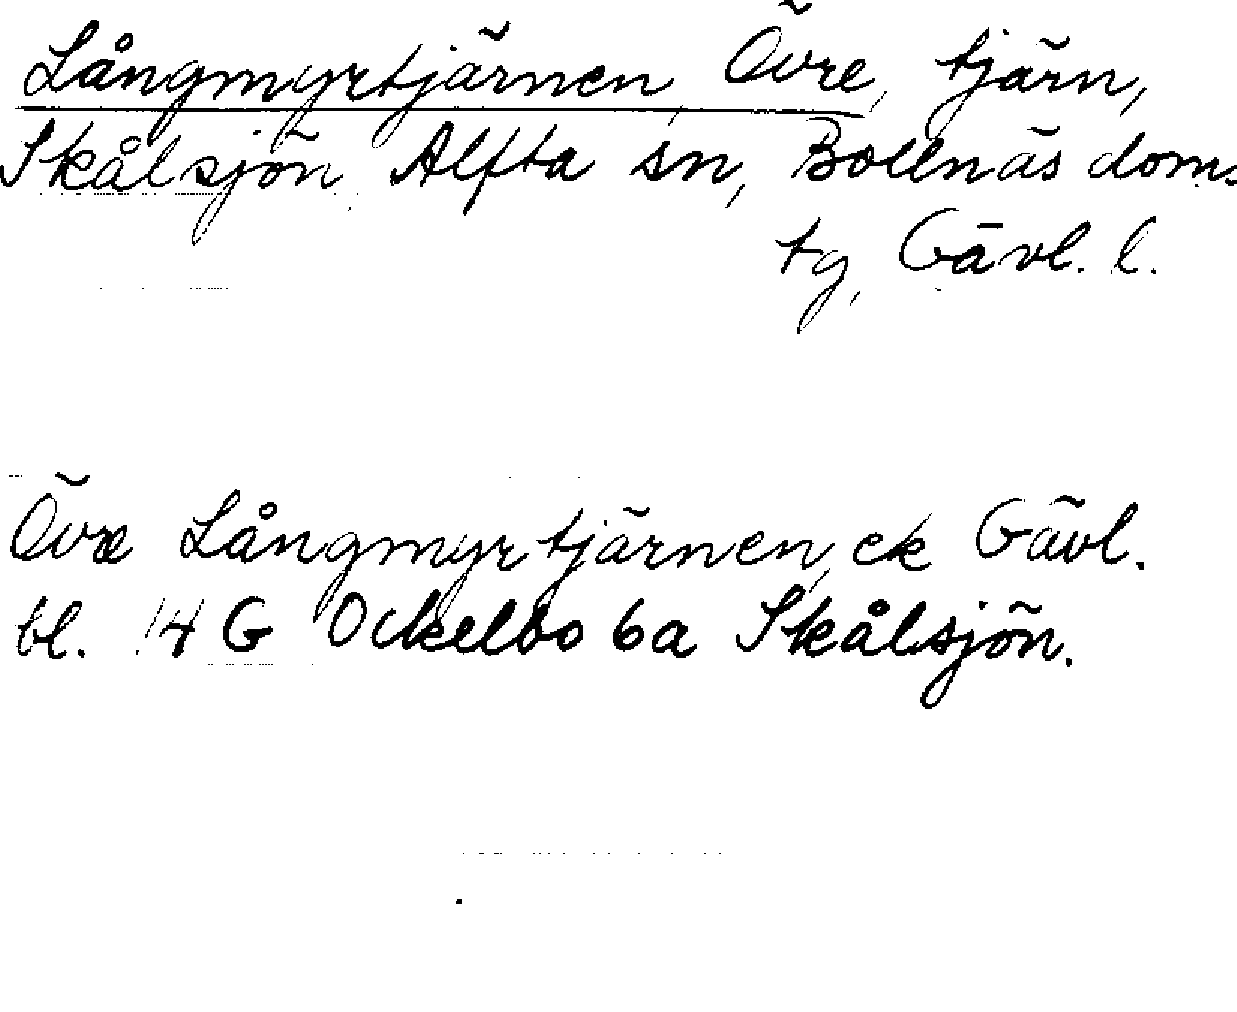 Långmyrtjärnen, Övre, tjärn,
Skålsjön Alfta sn, Bollnäs dom.
tg, Gävl. l.
Övre Långmyrtjärnen, ek Gävl.
bl. 14 G Ockelbo 6a Skålsjön.